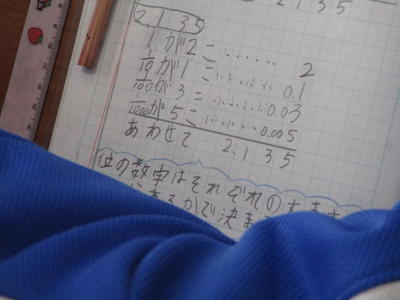 2.135
2.135
1が2こ…… 2
1/10が1こ…… 0.1
1/100が3こ…… 0.03
1/1000が5こ…… 0.005
あわせて 2.135
位の数字はそれぞれの大きさ
かで決ま